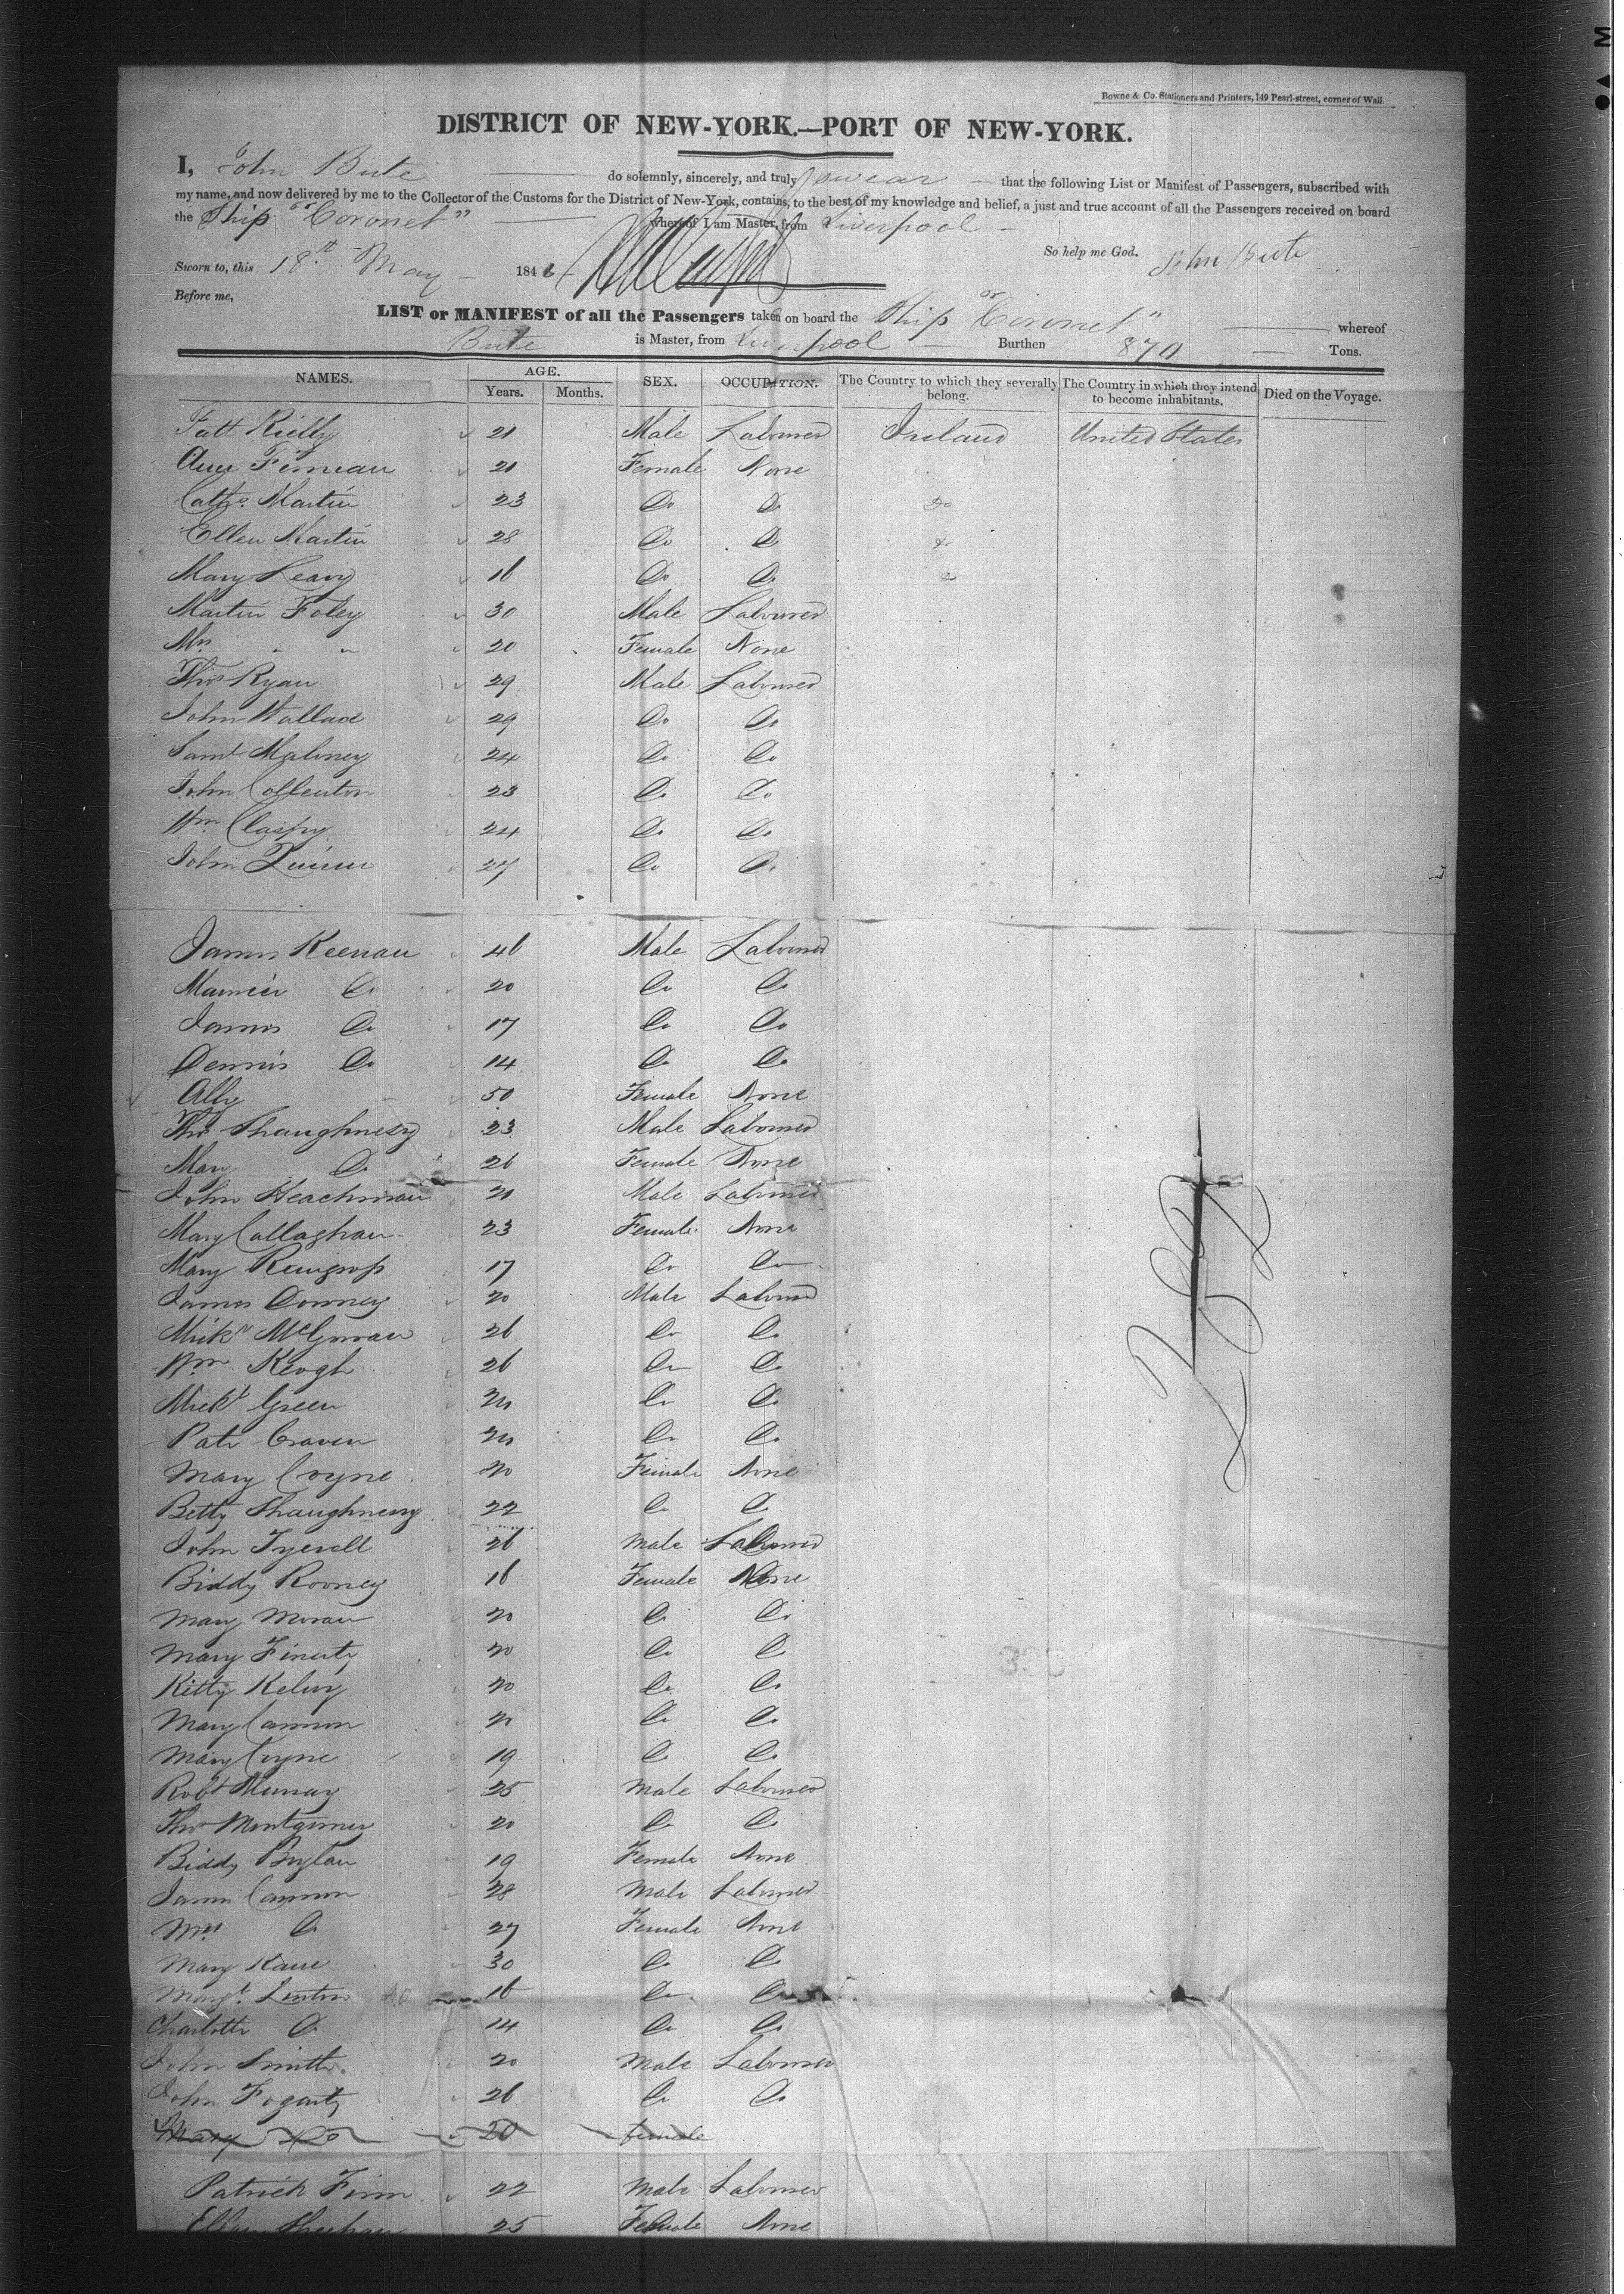 Bowne & Co. Stationers and Printers, 149 Pearl-street, corner of Wall.
DISTRICT OF NEW-YORK.—PORT OF NEW-YORK.
I, John Bute do solemnly, sincerely, and truly swear that the following List or Manifest of Passengers, subscribed with
my name, and now delivered by me to the Collector of the Customs for the District of New-York, contains, to the best of my knowledge and belief, a just and true account of all the Passengers received on board
the Ship "Coronet" whereof I am Master, from Liverpool
So help me God. John Bute
Sworn to, this 18th May 1846
Before me,
LIST or MANIFEST of all the Passengers taken on board the Ship "Coronet" whereof
Bute is Master, from Liverpool Burthen 870 Tons.
NAMES. AGE. SEX. OCCUPATION. The Country to which they severally belong. The Country in which they intend to become inhabitants. Died on the Voyage.
Years. Months.
Patt Rielly 21 Male Labourer Ireland United States
Ann 21 Female None
Cathe Martin 23 Do Do Do
Ellen Martin 28 Do Do Do
Mary Leavy 16 Do Do Do
Martin Foley 30 Male Labourer
Mrs " " 20 Female None
Thos Ryan 29 Male Labourer
John Wallace 29 Do Do
Saml Maloney 24 Do Do
John Collenton 23 Do Do
Wm 24 Do Do
John Quinn 27 Do Do
James Keenan 46 Male Labourer
Do 20 Do Do
James Do 17 Do Do
Dennis Do 14 Do Do
Ally 50 Female None
Thos Shaughnessy 23 Male Labourer
Mary Do 26 Female None
John 20 Male Labourer
Mary Callaghan 23 Female None
Mary 17 Do Do
James Downey 20 Male Labourer
Mick McGowan 26 Do Do
Wm Keogh 26 Do Do
Mickl Green 20 Do Do
Patk Craven 20 Do Do
Mary Coyne 20 Female None
Betty Shaughnessy 22 Do Do
John Tyerell 26 Male Labourer
Biddy Rooney 16 Female None
Mary Moran 20 Do Do
Mary Finerty 20 Do Do
Kitty 20 Do Do
Mary Cannon 20 Do Do
Mary Coyne 19 Do Do
Robt Murray 25 Male Labourer
Thos Montgomery 20 Do Do
Biddy Boylan 19 Female None
James Cannon 28 Male Labourer
Mrs Do 27 Female None
Mary Kane 30 Do Do
Margt Linton 16 Do Do
Charlotte Do 14 Do Do
John Smith 20 Male Labourer
John Fogarty 26 Do Do
Mary Do 20 female
Patrick Finn 22 Male Labourer
Ellen Sheehan 25 Female None